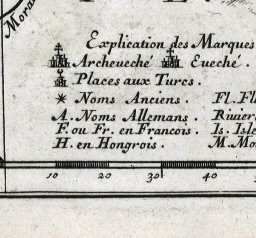 Mora
Explication des Marques
Archeveché Eveché.
Places aux Turcs.
Noms Anciens. Fl. Fl
A. Noms Allemans. Riviere
F. ou Fr. en Francois. Is. Isle
H. en Hongrois. M. Mo
10 20 30 40